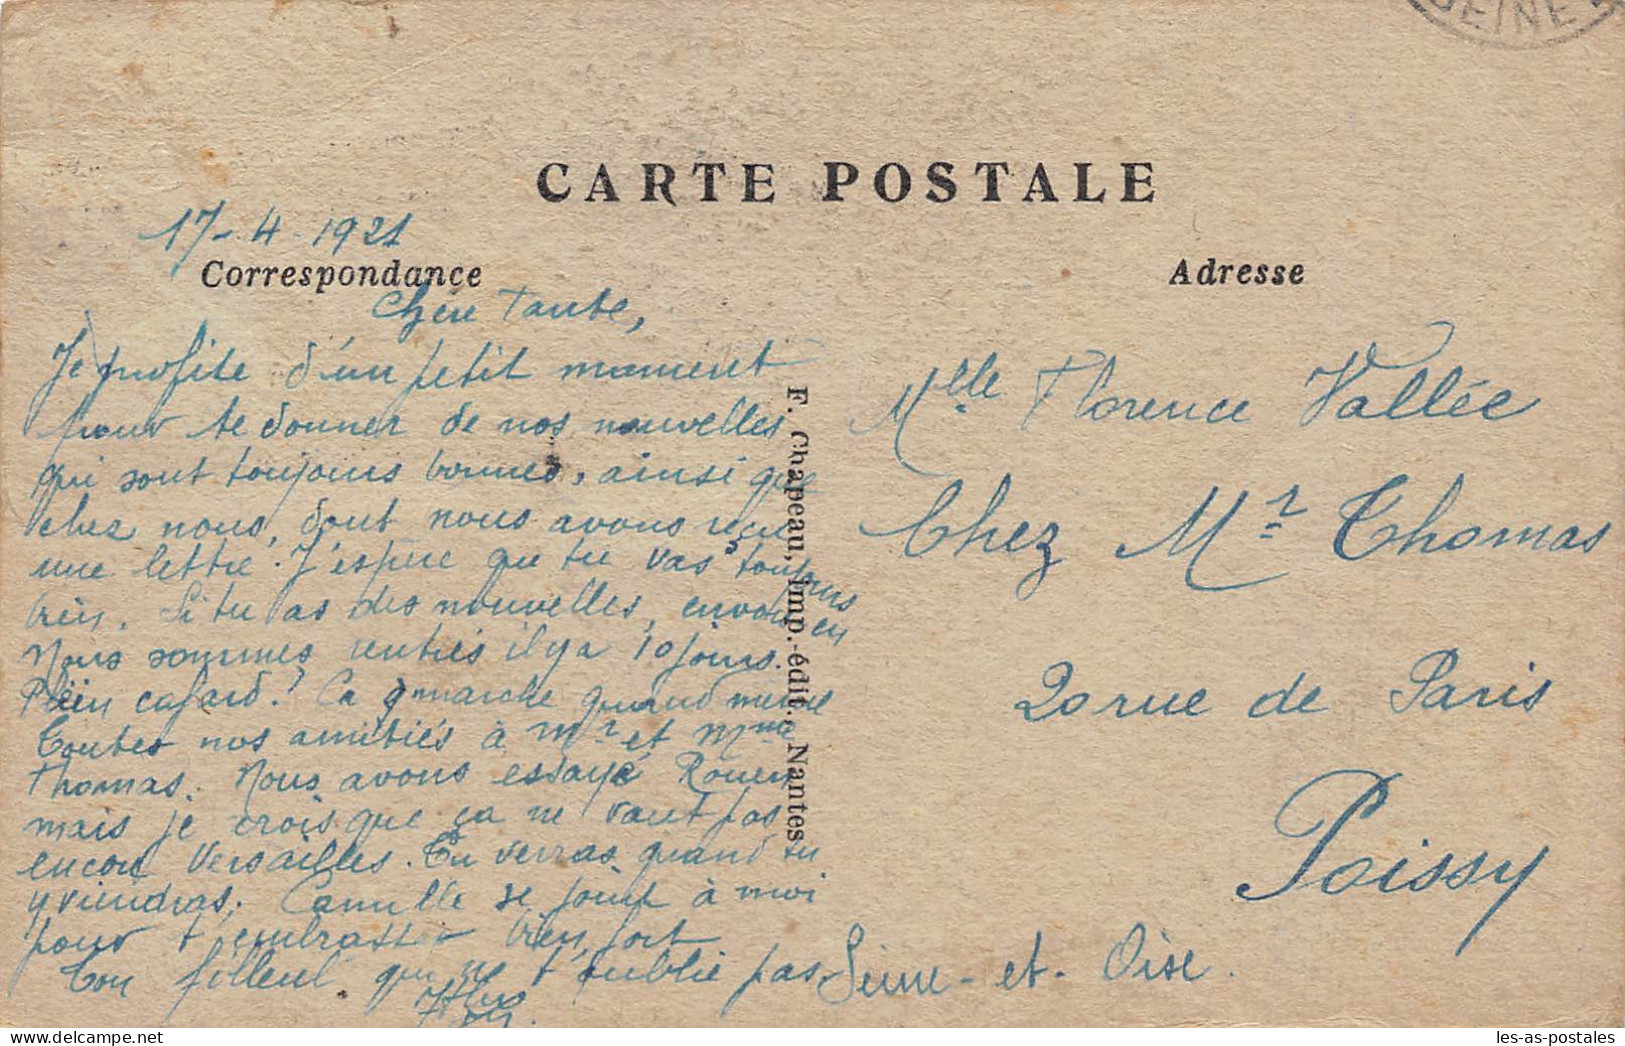 SEINE
CARTE POSTALE
17-4-1921
Correspondance
Chère Tante,
Je profite d'un petit moment
pour te donner de nos nouvelles
qui sont toujours bonnes, ainsi que
chez nous, dont nous avons reçu
une lettre. J'espère que tu vas toujours
bien. Si tu as des nouvelles, envois en
Nous sommes rentrés il y a 10 jours.
Plein cafard! Ca marche quand même
Toutes nos amitiés à Mr et Mme
Thomas. Nous avons essayé Rouen
mais je crois que ça ne vaut pas
encore Versailles. Tu verras quand tu
y viendras. Camille se joint à moi
pour t'embrasser bien fort
Ton filleul qui ne t'oublie pas
F. Chapeau, Imp.-édit., Nantes
Adresse
Mlle Florence Vallée
Chez Mr Thomas
20 rue de Paris
Poissy
Seine-et-Oise.
les-as-postales